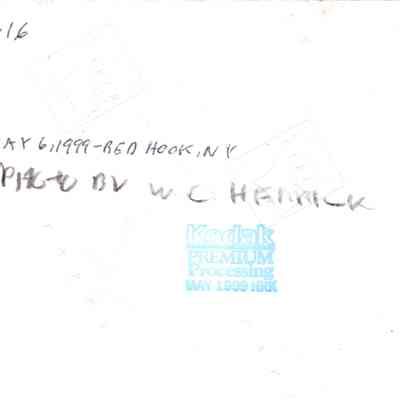 -16
AY 6, 1999-RED HOOK, NY
PHOTO BY W. C. HERRICK
Kodak
PREMIUM
Processing
MAY 1999